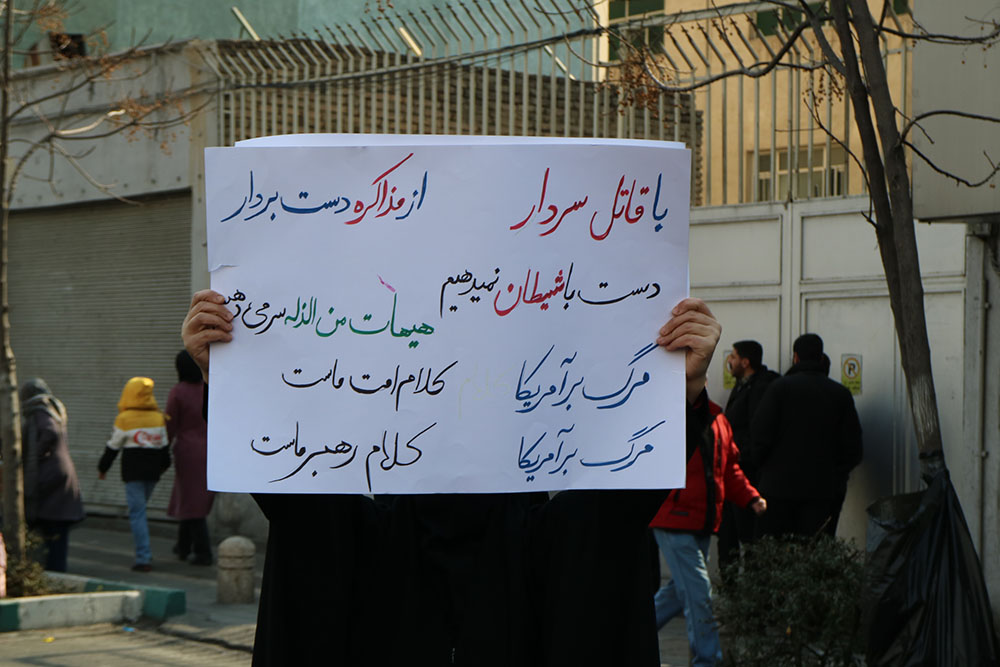 با قاتل سردار از مذاکره دست بردار
دست با شیطان نمیدهیم هیهات من الذله سر می‌دهیم
مرگ بر آمریکا کلام امت ماست
مرگ بر آمریکا کلام رهبر ماست